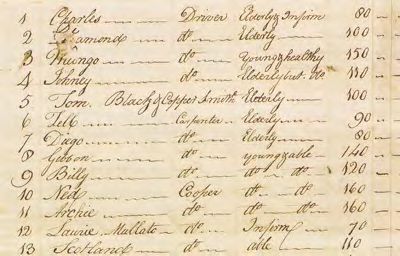 1 Charles — Driver Elderly & Infirm 80 —
2 Diamond — do — Elderly — 100 —
3 Mungo — do — young & healthy 150 —
4 Johney — do — Elderly but do 110 —
5 Tom Black & Copper Smith Elderly — 100 —
6 Carpenter — Elderly — 90 —
7 — do — Elderly — 80 —
8 — do — young & able — 140 —
9 Billy — do — do & do — 120 —
10 Ned — Cooper do — do — 160 —
11 Archie — do — do — do — 160 —
12 Laurie Mullato — do — Infirm — 70 —
13 Scotland — do — able — 110 —